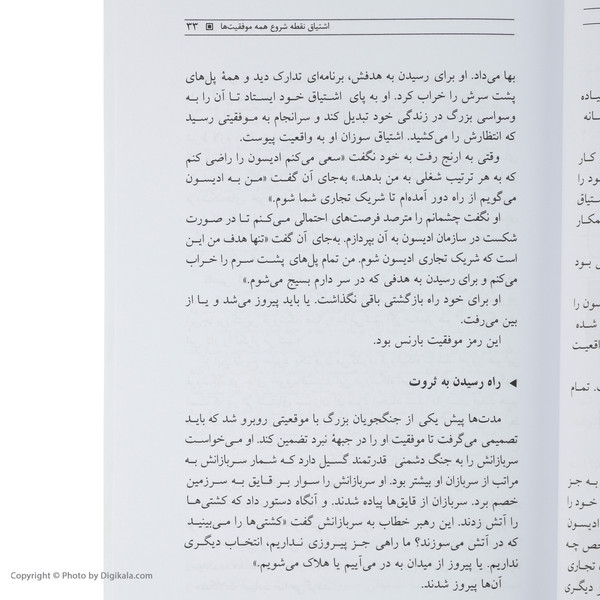 اشتیاق نقطه شروع همه موفقیت‌ها ۳۳
بها می‌داد. او برای رسیدن به هدفش، برنامه‌ای تدارک دید و همهٔ پل‌های
پشت سرش را خراب کرد. او به پای اشتیاق خود ایستاد تا آن را به
وسواسی بزرگ در زندگی خود تبدیل کند و سرانجام به موفقیتی رسید
که انتظارش را می‌کشید. اشتیاق سوزان او به واقعیت پیوست.
وقتی به ارنج رفت به خود نگفت «سعی می‌کنم ادیسون را راضی کنم
که به هر ترتیب شغلی به من بدهد.» به‌جای آن گفت «من به ادیسون
می‌گویم از راه دور آمده‌ام تا شریک تجاری شما شوم.»
او نگفت چشمانم را مترصد فرصت‌های احتمالی می‌کنم تا در صورت
شکست در سازمان ادیسون به آن بپردازم. به‌جای آن گفت «تنها هدف من این
است که شریک تجاری ادیسون شوم. من تمام پل‌های پشت سرم را خراب
می‌کنم و برای رسیدن به هدفی که در سر دارم بسیج می‌شوم.»
او برای خود راه بازگشتی باقی نگذاشت. یا باید پیروز می‌شد و یا از
بین می‌رفت.
این رمز موفقیت بارنس بود.
راه رسیدن به ثروت
مدت‌ها پیش یکی از جنگجویان بزرگ با موقعیتی روبرو شد که باید
تصمیمی می‌گرفت تا موفقیت او را در جبههٔ نبرد تضمین کند. او می‌خواست
سربازانش را به جنگ دشمنی قدرتمند گسیل دارد که شمار سربازانش به
مراتب از سربازان او بیشتر بود. او سربازانش را سوار بر قایق به سرزمین
خصم برد. سربازان از قایق‌ها پیاده شدند. و آنگاه دستور داد که کشتی‌ها
را آتش زدند. این رهبر خطاب به سربازانش گفت «کشتی‌ها را می‌بینید
که در آتش می‌سوزند؟ ما راهی جز پیروزی نداریم، انتخاب دیگری
نداریم. یا پیروز از میدان به در می‌آییم یا هلاک می‌شویم.»
آن‌ها پیروز شدند.
Copyright © Photo by Digikala.com